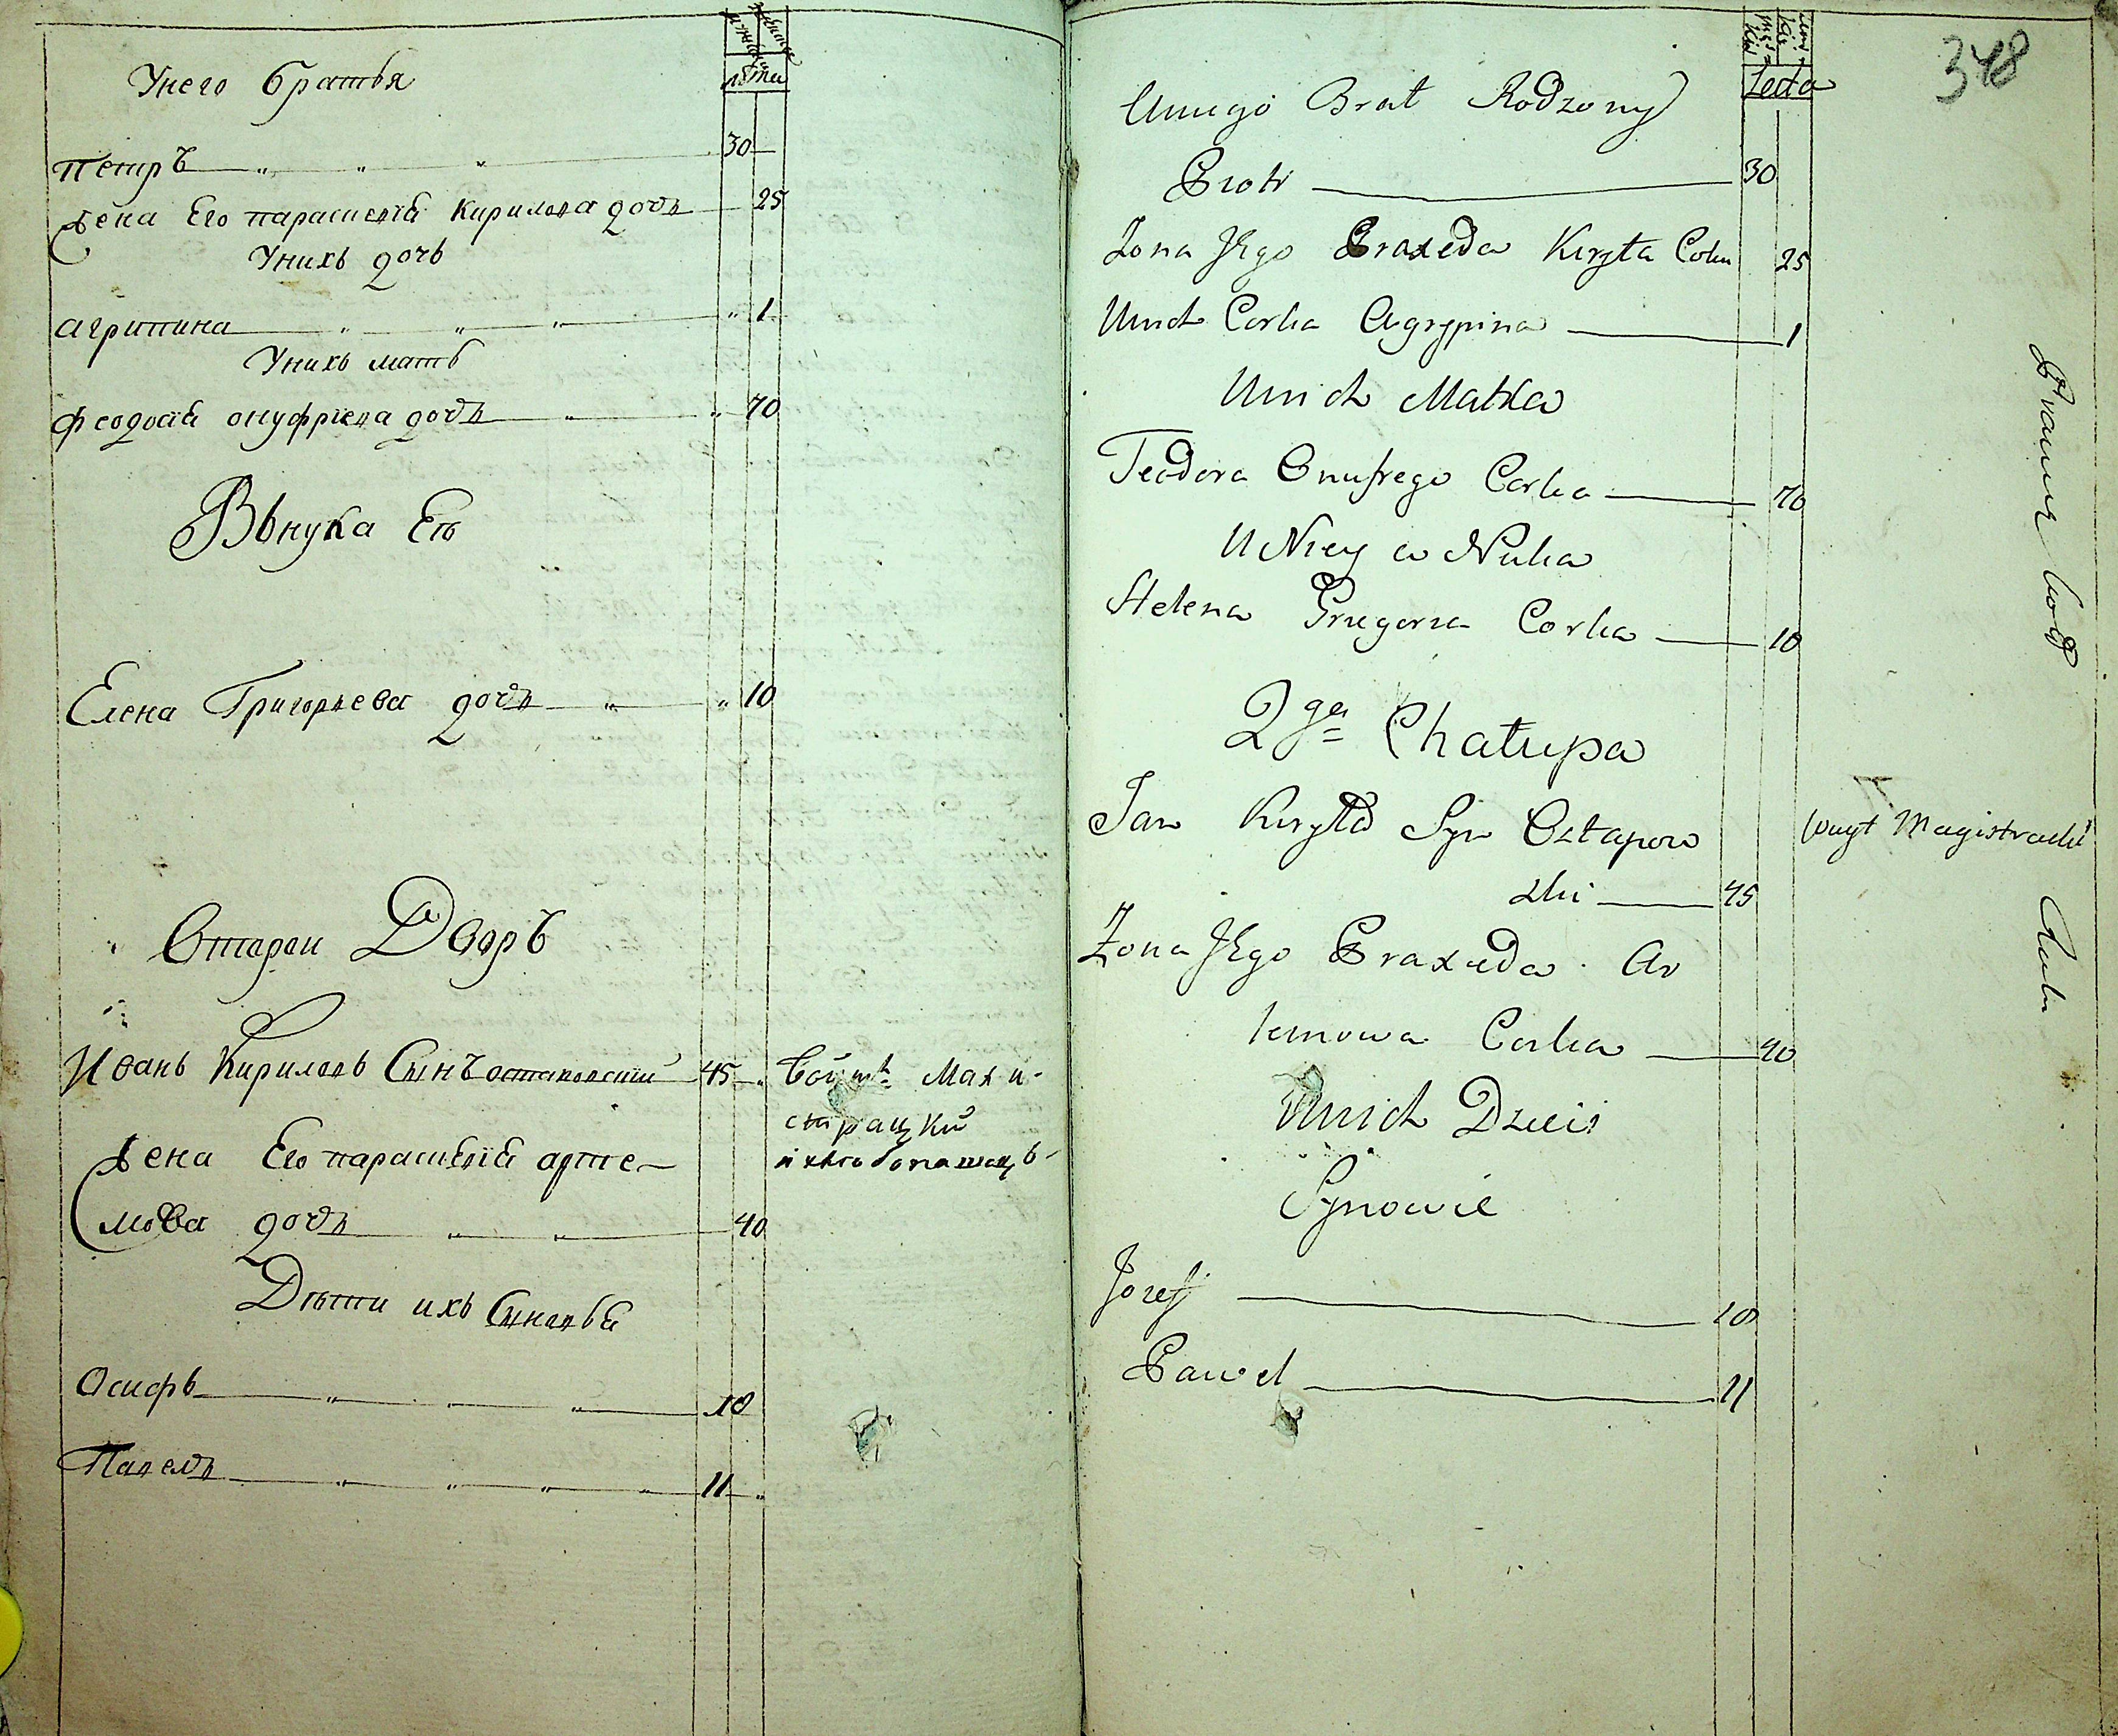 мужеска
женска
лѣта
Унего братья
Петръ 30
жена Его параскевія Кирилова дочь 25
Унихъ дочь
агрипина 1
Унихъ мать
феодосія онуфріева дочь 70
Вънука Его
Елена Григорьева дочь 10
Второи Дворъ
Иванъ Кириловъ Сынъ остаповскій 45 Войтъ Маги-
страцкій
и хлѣбопашецъ
жена Его параскевія арте-
мова дочь 40
Дѣти ихъ Сыновья
Осифъ 18
Павелъ 11
348
męs
kie
zens
kie
Leta
Uniego Brat Rodzony
Piotr 30
Zona Jego Praxeda Kiryła Corka 25
Unich Corka Agrypina 1
Unich Matka
Teodora Onufrego Corka 70
U Niey w Nuka
Helena Gregorza Corka 10
2ga Chałupa
Jan Kiryła Syn Ostapow
ski 45
Woyt Magistracki
Zona Jego Praxeda Ar
temowa Corka 40
Unich Dzieci
Synowie
Jozef 18
Pawel 11